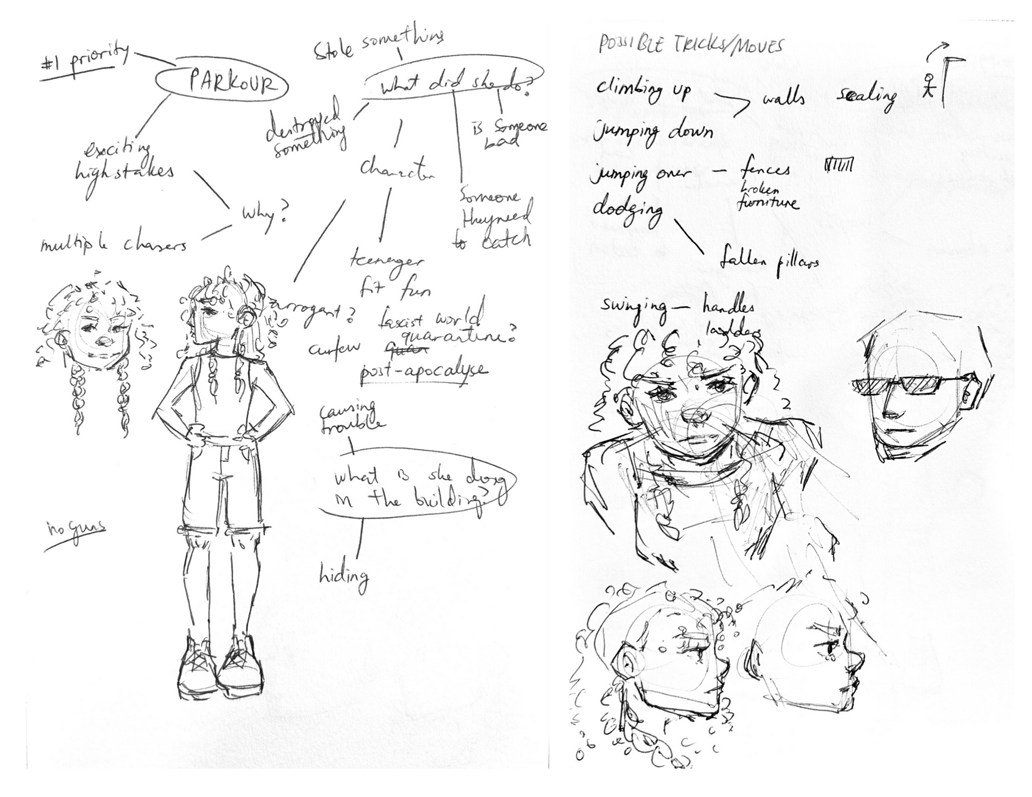 #1 priority
PARKOUR
exciting
high stakes
why?
multiple chasers
Stole something
what did she do?
destroyed
something
is someone
bad
character
someone
they need
to catch
teenager
fit fun
arrogant?
fascist world
curfew
quarantine?
quar
post-apocalyse
causing
trouble
what is she doing
in the building?
hiding
no guns
POSSIBLE TRICKS/MOVES
climbing up
walls
scaling
jumping down
jumping over — fences
broken
furniture
dodging
fallen pillars
swinging — handles
ladders